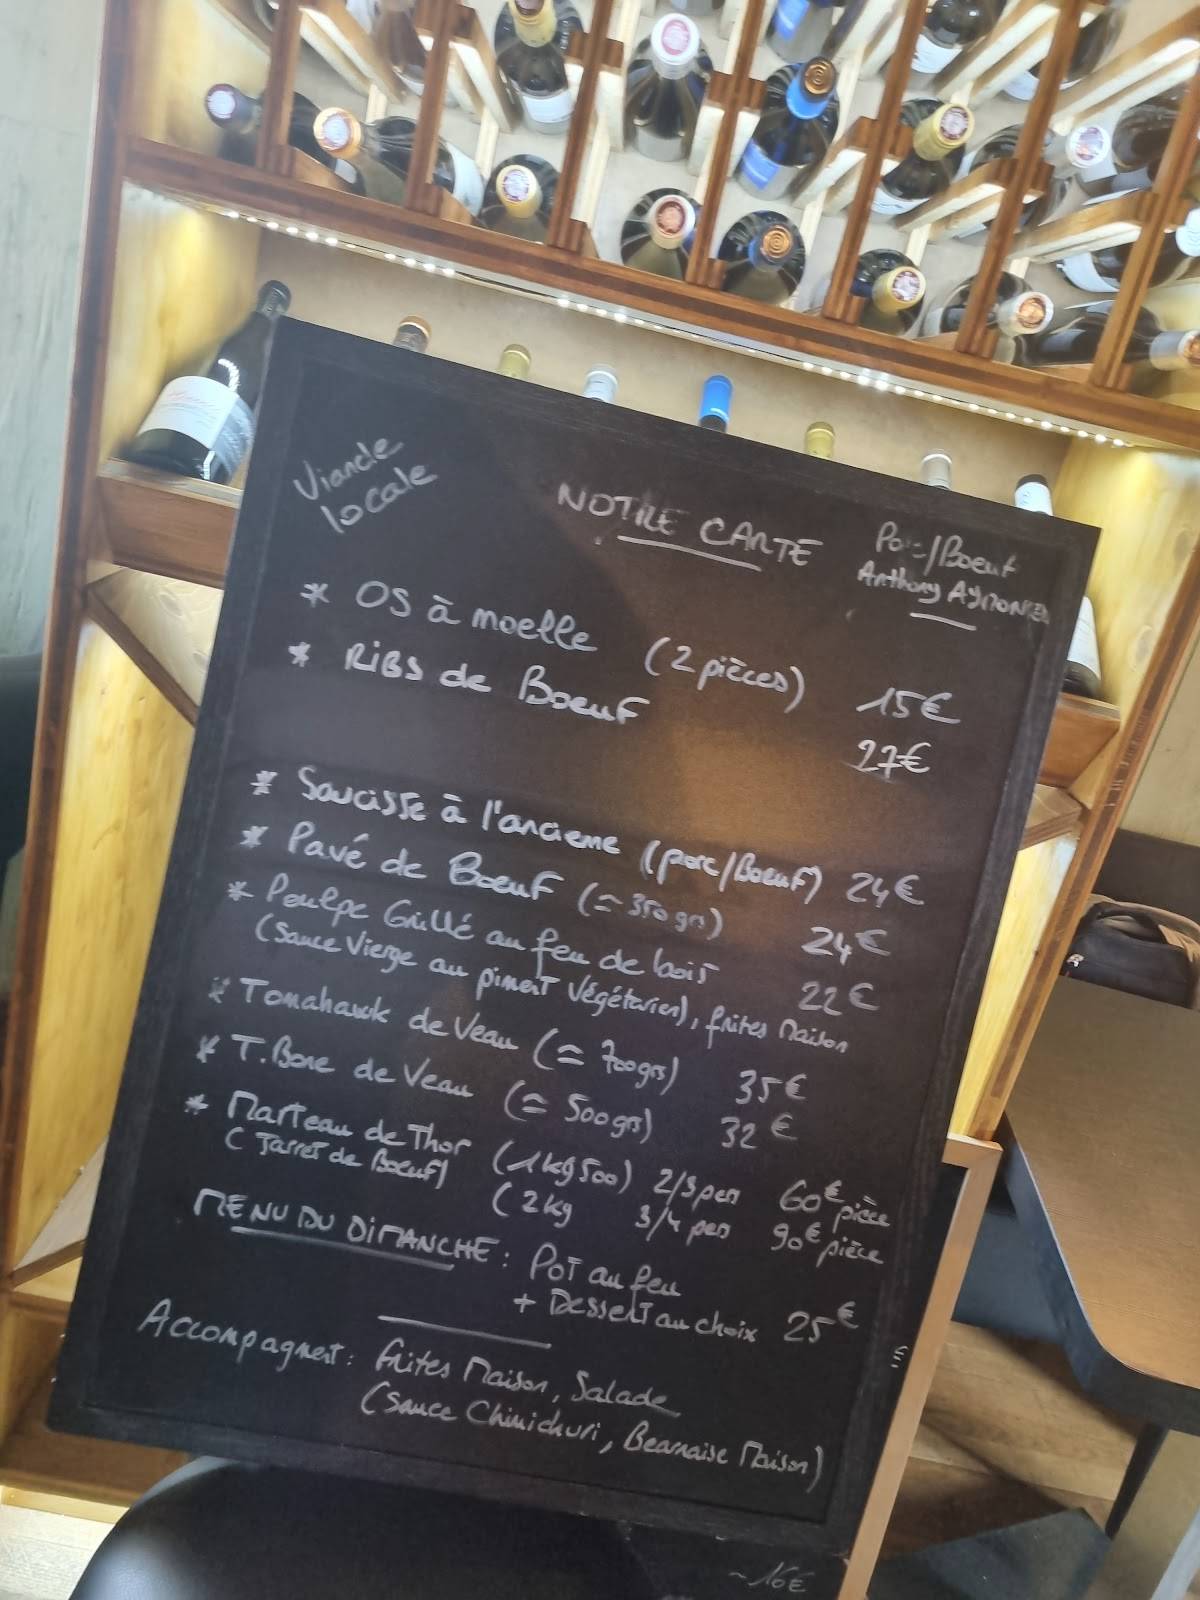 Viande
locale
NOTRE CARTE
Porc/Boeuf
Anthony AYMONIER
* OS à moelle (2 pièces) 15€
* RIBS de Boeuf 27€
* Saucisse à l'ancienne (porc/Boeuf) 24€
* Pavé de Boeuf (≃ 350 grs) 24€
* Poulpe Grillé au feu de bois 22€
(Sauce Vierge au piment Végétarien), frites Maison
* Tomahawk de Veau (≃ 700grs) 35€
* T.Bone de Veau (≃ 500grs) 32€
* Marteau de Thor (1kg500) 2/3 pers 60€ pièce
(Jarret de Boeuf) (2kg 3/4 pers 90€ pièce
MENU DU DIMANCHE : Pot au feu
+ Dessert au choix 25€
Accompagnent : frites Maison, Salade
(Sauce Chimichuri, Bearnaise Maison)
~16€